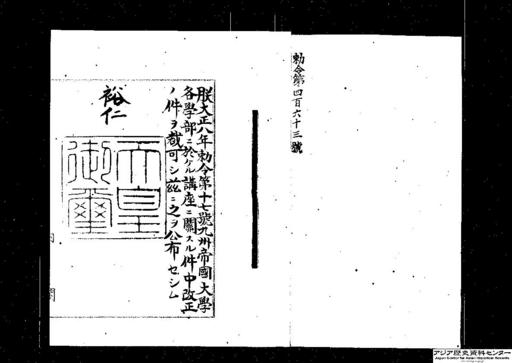 勅令第四百六十三號
朕大正八年勅令第十七號九州帝國大學
各學部ニ於ケル講座ニ關スル件中改正
ノ件ヲ裁可シ茲ニ之ヲ公布セシム
裕仁
天皇
御璽
内
閣
アジア歴史資料センター
Japan Center for Asian Historical Records